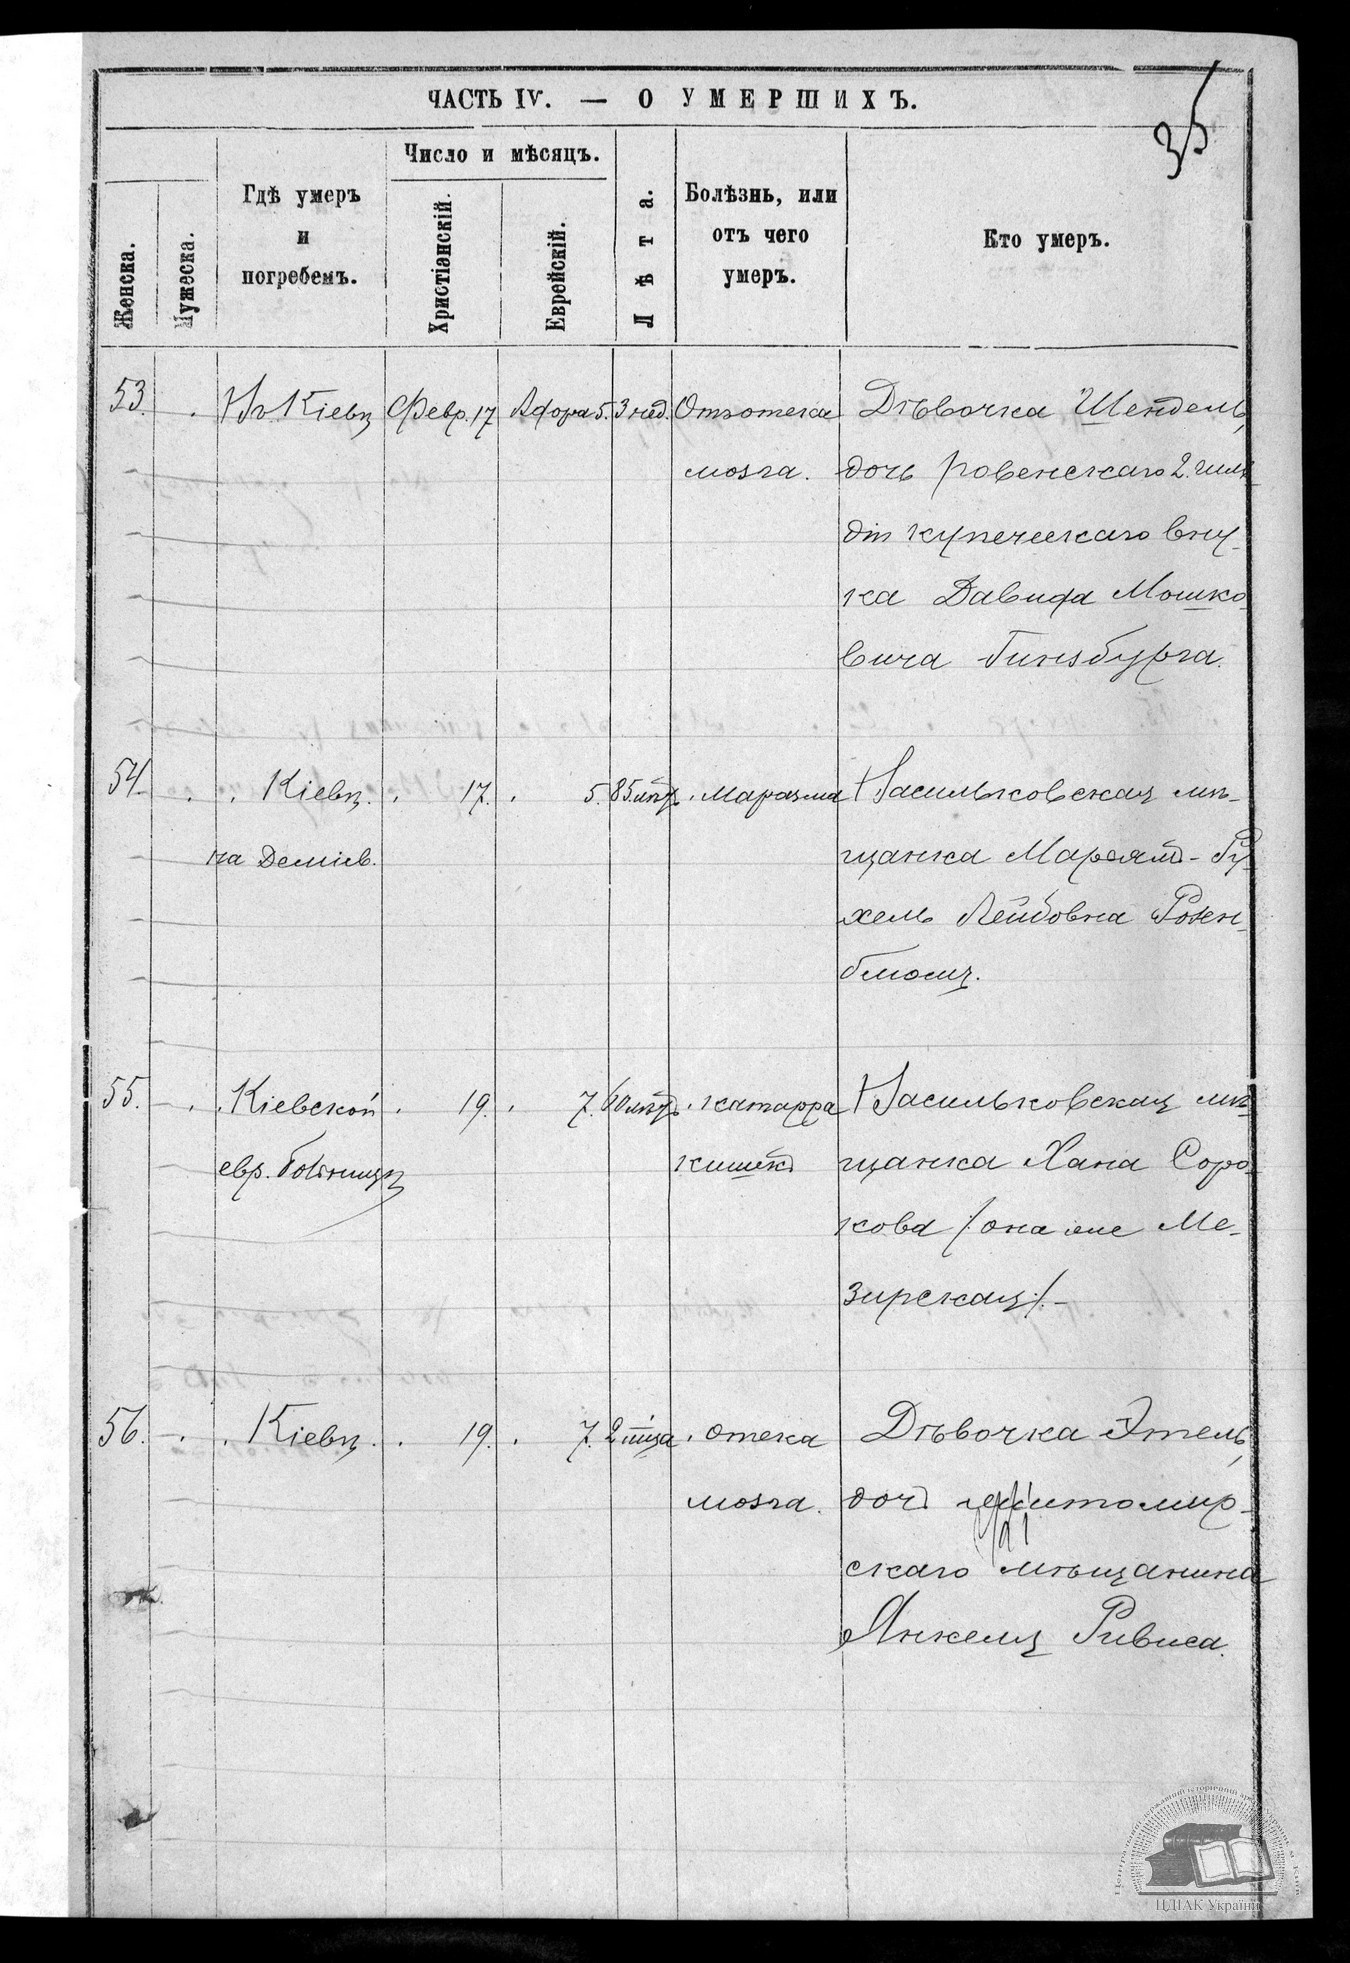 ЧАСТЬ IV. — О УМЕРШИХЪ.
35
Женска.
Мужеска.
Гдѣ умеръ
и
погребенъ.
Число и мѣсяцъ.
Христіянскій.
Еврейскій.
Лѣта.
Болѣзнь, или
отъ чего
умеръ.
Кто умеръ.
53. Въ Кіевѣ Февр. 17 Адора 5. 3 нед. Отъ отека Дѣвочка Шендель,
мозга. дочь Ровенскаго 2. гиль-
діи купеческаго вну-
ка Давида Мошко
вича Гинзбурга.
54. Кіевѣ. 17. 5. 85 лѣтъ маразма Васильковская мѣ-
на Деміев. щанка Марьямъ-Ру
хель Лейбовна Розен-
блюмъ.
55. Кіевской 19. 7. 60 лѣтъ катарра Васильковская мѣ-
евр. больницѣ кишекъ щанка Хана Соро-
кова /: она же Ме-
зирская :/ –
56. Кіевѣ. 19. 7. 2 м-ца отека Дѣвочка Этель,
мозга. дочь житомир-
скаго мѣщанина
Янкеля Ривиса.
ЦДІАК України